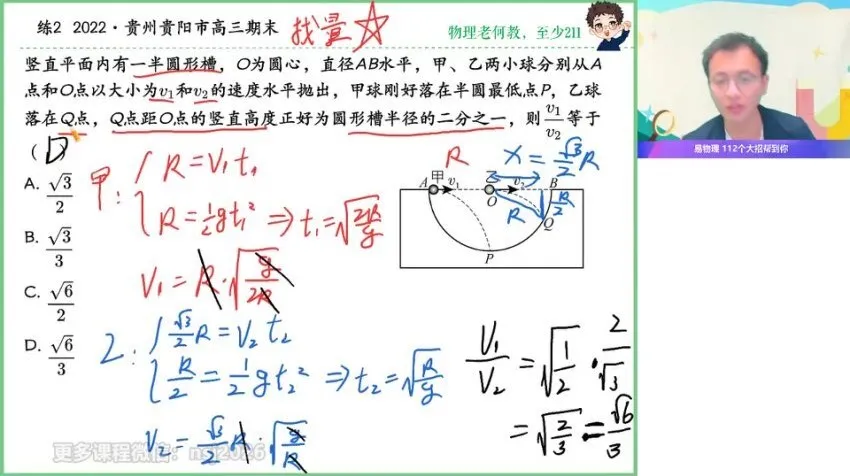 练2 2022·贵州贵阳市高三期末
找量☆
物理老何教，至少211
竖直平面内有一半圆形槽，O为圆心，直径AB水平，甲、乙两小球分别从A
点和O点以大小为v₁和v₂的速度水平抛出，甲球刚好落在半圆最低点P，乙球
落在Q点，Q点距O点的竖直高度正好为圆形槽半径的二分之一，则v₁/v₂等于
( D
A. √3/2
B. √3/3
C. √6/2
D. √6/3
甲: R = V₁t₁
R = 1/2 g t₁² ⇒ t₁ = √(2R/g)
V₁ = R·√(g/2R)
乙: √3/2 R = V₂t₂
R/2 = 1/2 g t₂² ⇒ t₂ = √(R/g)
V₂ = √3/2 R·√(g/R)
R
x = √3/2 R
A 甲 v₁ 乙 v₂ B
O
R
R/2
Q
P
V₁/V₂ = √(1/2) · 2/√3
= √(2/3) = √6/3
易物理 112个大招帮到你